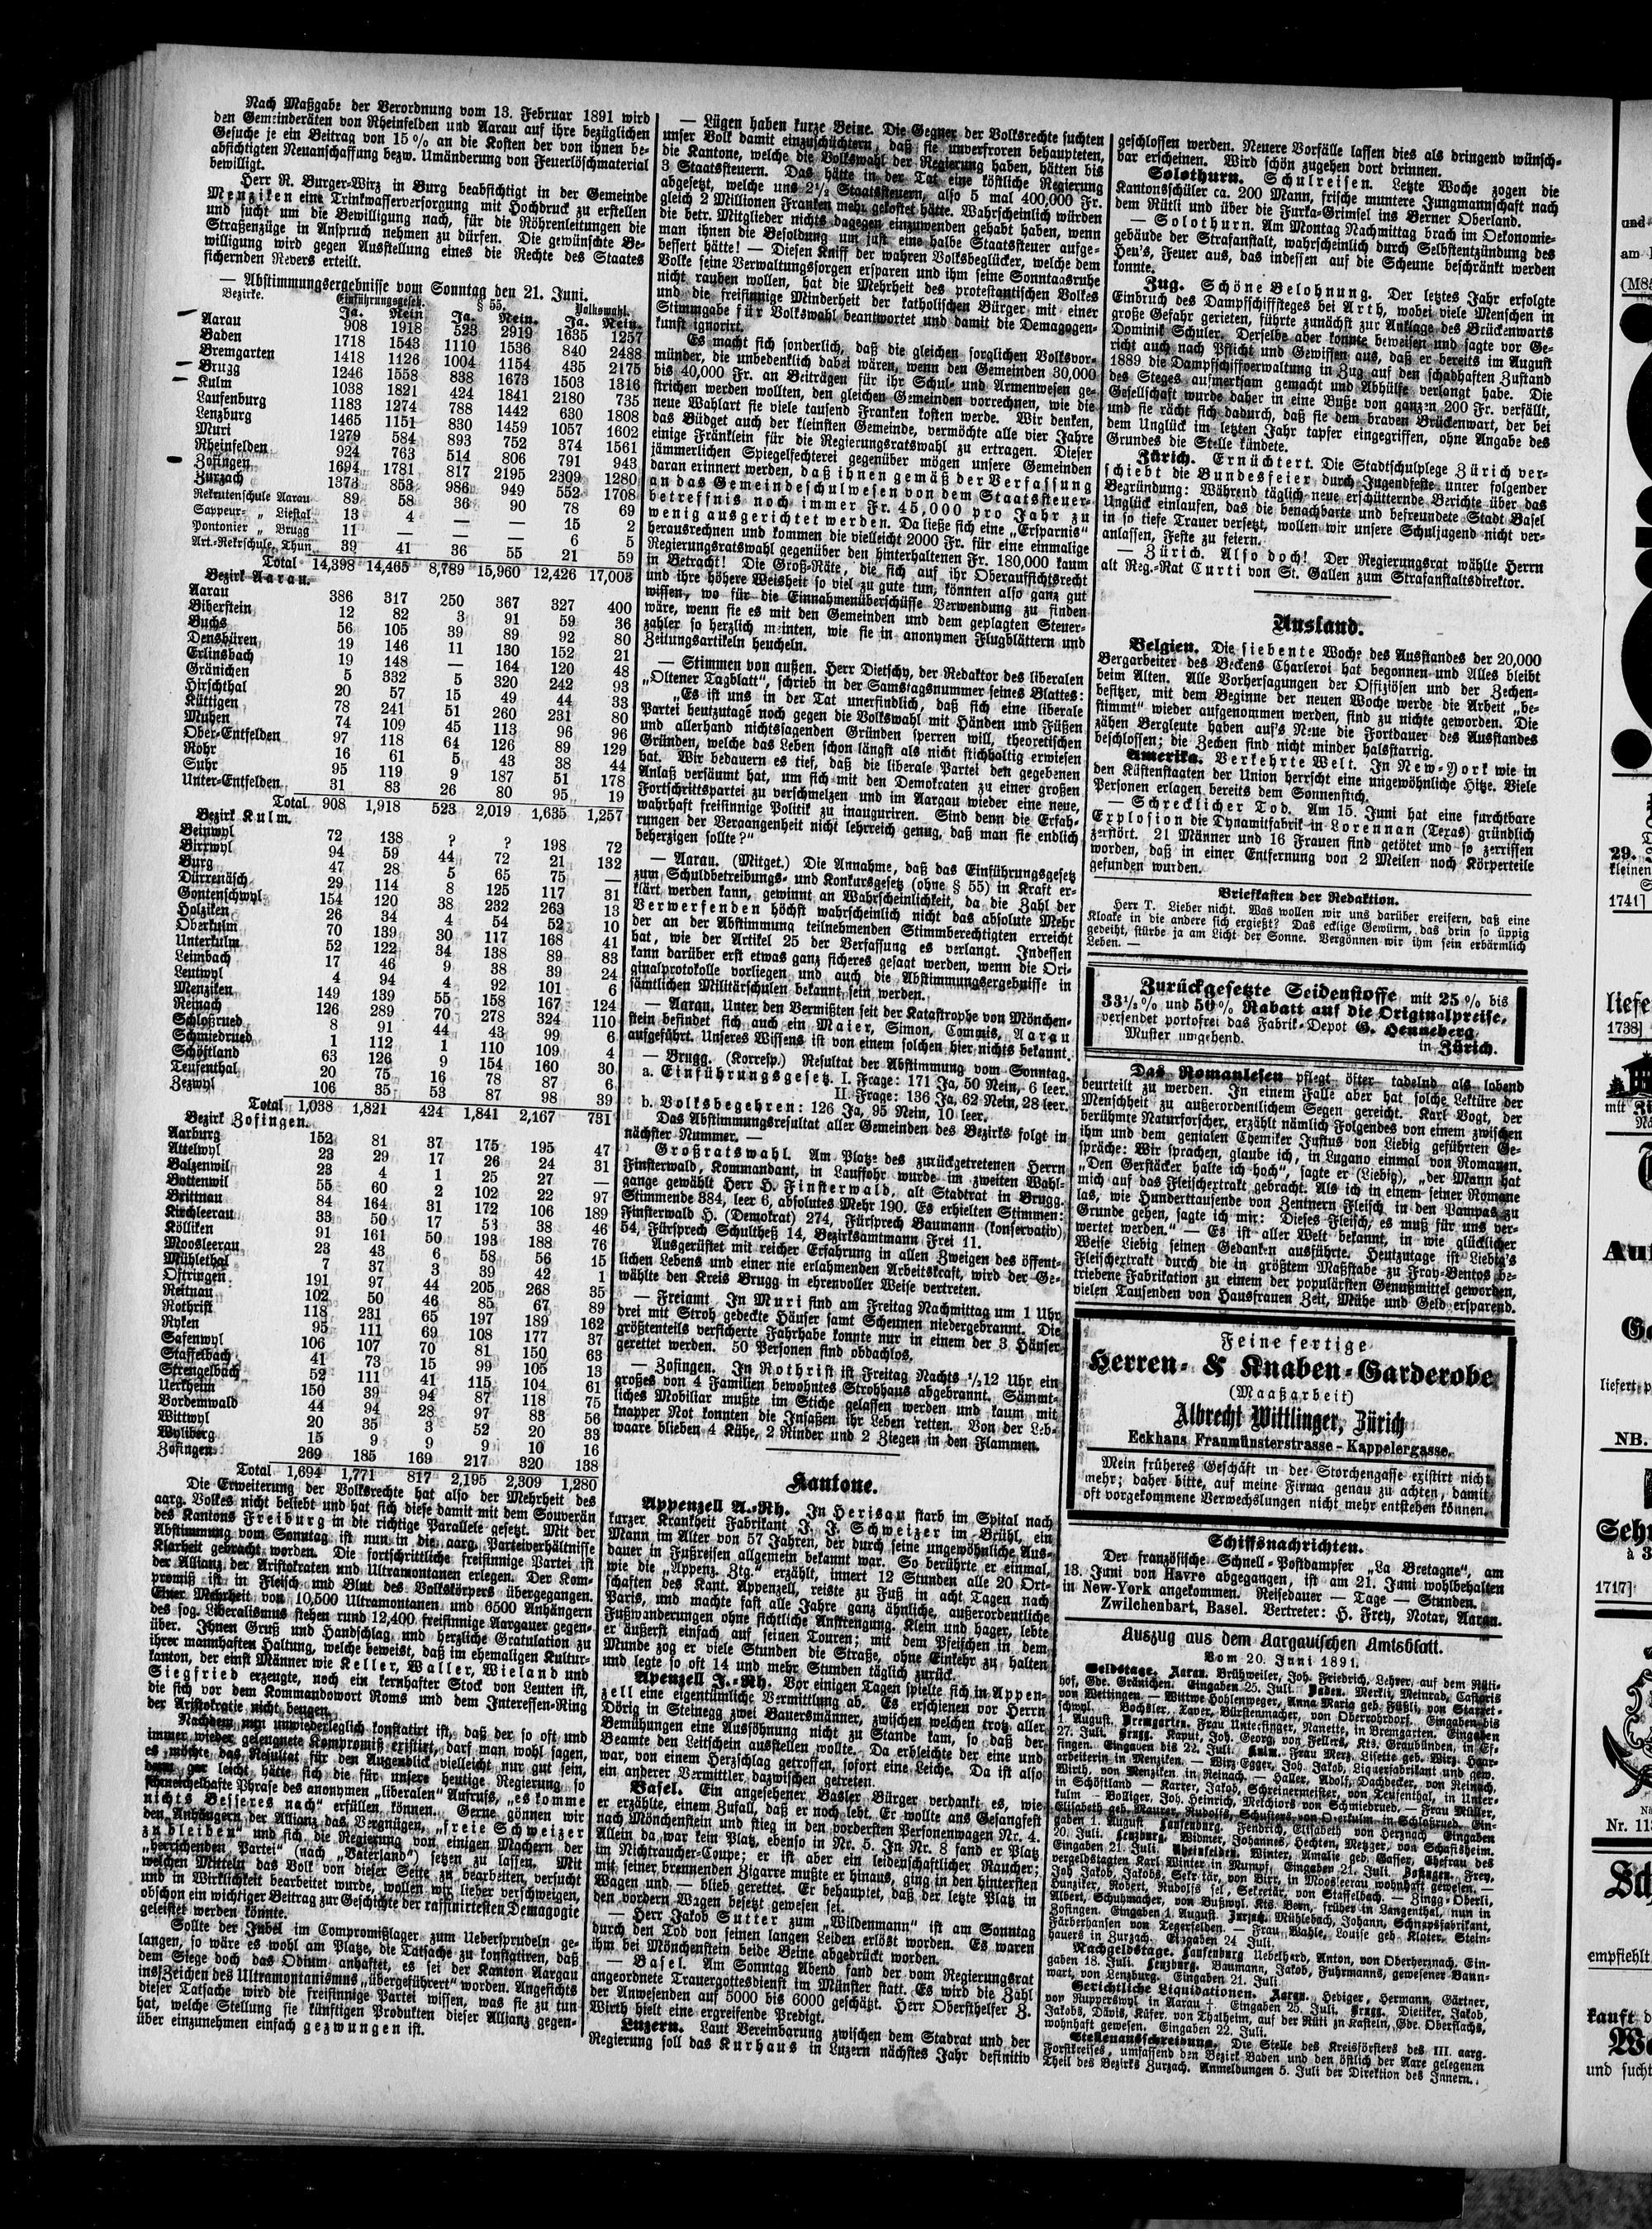 Nach Maßgabe der Verordnung vom 13. Februar 1891 wird
den Gemeinderäten von Rheinfelden und Aarau auf ihre bezüglichen
Gesuche je ein Beitrag von 15 % an die Kosten der von ihnen be-
absichtigten Neuanschaffung bezw. Umänderung von Feuerlöschmaterial
bewilligt.
Herr R. Burger-Wirz in Burg beabsichtigt in der Gemeinde
Menziken eine Trinkwasserversorgung mit Hochdruck zu erstellen
und sucht um die Bewilligung nach, für die Röhrenleitungen die
Straßenzüge in Anspruch nehmen zu dürfen. Die gewünschte Be-
willigung wird gegen Ausstellung eines die Rechte des Staates
sichernden Revers erteilt.
— Abstimmungsergebnisse vom Sonntag den 21. Juni.
Bezirke. Einführungsgesetz. § 55. Volkswahl.
Ja. Nein Ja. Nein. Ja. Nein.
Aarau 908 1918 523 2919 1635 1257
Baden 1718 1543 1110 1536 840 2488
Bremgarten 1418 1126 1004 1154 435 2175
Brugg 1246 1558 838 1673 1503 1316
Kulm 1038 1821 424 1841 2180 735
Laufenburg 1183 1274 788 1442 630 1808
Lenzburg 1465 1151 830 1459 1057 1602
Muri 1279 584 893 752 374 1561
Rheinfelden 924 763 514 806 791 943
Zofingen 1694 1781 817 2195 2309 1280
Zurzach 1373 853 986 949 552 1708
Rekrutenschule Aarau 89 58 36 90 78 69
Sappeur- „ Liestal 13 4 — — 15 2
Pontonier „ Brugg 11 — — — 6 5
Art.-Rekrschule, Thun 39 41 36 55 21 59
Total 14,398 14,465 8,789 15,960 12,426 17,003
Bezirk Aarau.
Aarau 386 317 250 367 327 400
Biberstein 12 82 3 91 59 36
Buchs 56 105 39 89 92 80
Densbüren 19 146 11 130 152 21
Erlinsbach 19 148 — 164 120 48
Gränichen 5 332 5 320 242 93
Hirschthal 20 57 15 49 44 33
Küttigen 78 241 51 260 231 80
Muhen 74 109 45 113 96 96
Ober-Entfelden 97 118 64 126 89 129
Rohr 16 61 5 43 38 44
Suhr 95 119 9 187 51 178
Unter-Entfelden 31 83 26 80 95 19
Total 908 1,918 523 2,019 1,635 1,257
Bezirk Kulm.
Beinwyl 72 138 ? ? 198 72
Birrwyl 94 59 44 72 21 132
Burg 47 28 5 65 75 —
Dürrenäsch 29 114 8 125 117 31
Gontenschwyl 154 120 38 232 263 13
Holziken 26 34 4 54 52 10
Oberkulm 70 139 30 117 168 41
Unterkulm 52 122 34 138 89 83
Leimbach 17 46 9 38 39 24
Leutwyl 4 94 4 92 101 6
Menziken 149 139 55 158 167 124
Reinach 126 289 70 278 324 110
Schloßrued 8 91 44 43 99 6
Schmiedrued 1 112 1 110 109 4
Schöftland 63 126 9 154 160 30
Teufenthal 20 75 16 78 87 6
Zezwyl 106 35 53 87 98 39
Total 1,038 1,821 424 1,841 2,167 731
Bezirk Zofingen.
Aarburg 152 81 37 175 195 47
Attelwyl 23 29 17 26 24 31
Balzenwil 23 4 1 25 27 —
Bottenwil 55 60 2 102 22 97
Brittnau 84 164 31 172 106 189
Kirchleerau 33 50 17 53 38 46
Kölliken 91 161 50 193 188 76
Moosleerau 23 43 6 58 56 15
Mühlethal 7 37 3 39 42 1
Oftringen 191 97 44 205 268 35
Reitnau 102 50 46 85 67 89
Rothrist 118 231 65 197 189 162
Ryken 95 111 69 108 177 37
Safenwyl 106 107 70 81 150 63
Staffelbach 41 73 15 99 105 13
Strengelbach 52 111 41 115 104 61
Uerkheim 150 39 94 87 118 75
Vordemwald 44 94 28 97 83 56
Wittwyl 20 35 3 52 20 33
Wyliberg 15 9 9 9 10 16
Zofingen 269 185 169 217 320 138
Total 1,694 1,771 817 2,195 2,309 1,280
Die Erweiterung der Volksrechte hat also der Mehrheit des
aarg. Volkes nicht beliebt und hat sich diese damit mit dem Souverän
des Kantons Freiburg in die richtige Parallele gesetzt. Mit der
Abstimmung vom Sonntag ist nun in die aarg. Parteiverhältnisse
Klarheit gebracht worden. Die fortschrittliche freisinnige Partei ist
der Allianz der Aristokraten und Ultramontanen erlegen. Der Kom-
promiß ist in Fleisch und Blut des Volkskörpers übergegangen.
Einer Mehrheit von 10,500 Ultramontanen und 6500 Anhängern
des sog. Liberalismus stehen rund 12,400 freisinnige Aargauer gegen-
über. Ihnen Gruß und Handschlag und herzliche Gratulation zu
ihrer mannhaften Haltung, welche beweist, daß im ehemaligen Kultur-
kanton, der einst Männer wie Keller, Waller, Wieland und
Siegfried erzeugte, noch ein kernhafter Stock von Leuten ist,
die sich vor dem Kommandowort Roms und dem Interessen-Ring
der Aristokratie nicht beugen.
Nachdem nun unwiederleglich konstatirt ist, daß der so oft und
immer wieder geleugnete Kompromiß existirt, darf man wohl sagen,
es möchte das Resultat für den Augenblick vielleicht nur gut sein,
denn gar leicht hätte sich die für unsere heutige Regierung so
schmeichelhafte Phrase des anonymen „liberalen" Aufrufs, „es komme
nichts Besseres nach" erfüllen können. Gerne gönnen wir
den Anhängern der Allianz das Vergnügen, „freie Schweizer
zu bleiben" und sich die Regierung von einigen Machern der
„herrschenden Partei" (nach „Vaterland") setzen zu lassen. Mit
welchen Mitteln das Volk von dieser Seite zu bearbeiten, versucht
und in Wirklichkeit bearbeitet wurde, wollen wir lieber verschweigen,
obschon ein wichtiger Beitrag zur Geschichte der raffinirtesten Demagogie
geleistet werden könnte.
Sollte der Jubel im Compromißlager zum Uebersprudeln ge-
langen, so wäre es wohl am Platze, die Tatsache zu konstatiren, daß
dem Siege doch das Odium anhaftet, es sei der Kanton Aargau
ins Zeichen des Ultramontanismus „übergeführt" worden. Angesichts
dieser Tatsache wird die freisinnige Partei wissen, was sie zu tun
hat, welche Stellung sie künftigen Produkten dieser Allianz gegen-
über einzunehmen einfach gezwungen ist.
— Lügen haben kurze Beine. Die Gegner der Volksrechte suchten
unser Volk damit einzuschüchtern, daß sie unverfroren behaupteten,
die Kantone, welche die Volkswahl der Regierung haben, hätten bis
3 Staatssteuern. Das hätte in der Tat eine köstliche Regierung
abgesetzt, welche uns 2½ Staatssteuern, also 5 mal 400,000 Fr.
gleich 2 Millionen Franken mehr gekostet hätte. Wahrscheinlich würden
die betr. Mitglieder nichts dagegen einzuwenden gehabt haben, wenn
man ihnen die Besoldung um just eine halbe Staatssteuer aufge-
bessert hätte! — Diesen Kniff der wahren Volksbeglücker, welche dem
Volke seine Verwaltungssorgen ersparen und ihm seine Sonntagsruhe
nicht rauben wollen, hat die Mehrheit des protestantischen Volkes
und die freisinnige Minderheit der katholischen Bürger mit einer
Stimmgabe für Volkswahl beantwortet und damit die Demagogen-
kunst ignorirt.
Es macht sich sonderlich, daß die gleichen sorglichen Volksvor-
münder, die unbedenklich dabei wären, wenn den Gemeinden 30,000
bis 40,000 Fr. an Beiträgen für ihr Schul- und Armenwesen ge-
strichen werden wollten, den gleichen Gemeinden vorrechnen, wie die
neue Wahlart sie viele tausend Franken kosten werde. Wir denken,
das Büdget auch der kleinsten Gemeinde, vermöchte alle vier Jahre
einige Fränklein für die Regierungsratswahl zu ertragen. Dieser
jämmerlichen Spiegelfechterei gegenüber mögen unsere Gemeinden
daran erinnert werden, daß ihnen gemäß der Verfassung
an das Gemeindeschulwesen von dem Staatssteuer-
betreffnis noch immer Fr. 45,000 pro Jahr zu
wenig ausgerichtet werden. Da ließe sich eine „Ersparnis"
herausrechnen und kommen die vielleicht 2000 Fr. für eine einmalige
Regierungsratswahl gegenüber den hinterhaltenen Fr. 180,000 kaum
in Betracht! Die Groß-Räte, die sich auf ihr Oberaufsichtsrecht
und ihre höhere Weisheit so viel zu gute tun, könnten also ganz gut
wissen, wo für die Einnahmenüberschüsse Verwendung zu finden
wäre, wenn sie es mit den Gemeinden und dem geplagten Steuer-
zahler so herzlich meinten, wie sie in anonymen Flugblättern und
Zeitungsartikeln heucheln.
— Stimmen von außen. Herr Dietschy, der Redaktor des liberalen
„Oltener Tagblatt", schrieb in der Samstagsnummer seines Blattes:
„Es ist uns in der Tat unerfindlich, daß sich eine liberale
Partei heutzutage noch gegen die Volkswahl mit Händen und Füßen
und allerhand nichtssagenden Gründen sperren will, theoretischen
Gründen, welche das Leben schon längst als nicht stichhaltig erwiesen
hat. Wir bedauern es tief, daß die liberale Partei den gegebenen
Anlaß versäumt hat, um sich mit den Demokraten zu einer großen
Fortschrittspartei zu verschmelzen und im Aargau wieder eine neue,
wahrhaft freisinnige Politik zu inauguriren. Sind denn die Erfah-
rungen der Vergangenheit nicht lehrreich genug, daß man sie endlich
beherzigen sollte?"
— Aarau. (Mitget.) Die Annahme, daß das Einführungsgesetz
zum Schuldbetreibungs- und Konkursgesetz (ohne § 55) in Kraft er-
klärt werden kann, gewinnt an Wahrscheinlichkeit, da die Zahl der
Verwerfenden höchst wahrscheinlich nicht das absolute Mehr
der an der Abstimmung teilnehmenden Stimmberechtigten erreicht
hat, wie der Artikel 25 der Verfassung es verlangt. Indessen
kann darüber erst etwas ganz sicheres gesagt werden, wenn die Ori-
ginalprotokolle vorliegen und auch die Abstimmungsergebnisse in
sämtlichen Militärschulen bekannt sein werden.
— Aarau. Unter den Vermißten seit der Katastrophe von Mönchen-
stein befindet sich auch ein Maier, Simon, Commis, Aarau
aufgeführt. Unseres Wissens ist von einem solchen hier nichts bekannt.
— Brugg. (Korresp.) Resultat der Abstimmung vom Sonntag.
a. Einführungsgesetz. I. Frage: 171 Ja, 50 Nein, 6 leer.
II. Frage: 136 Ja, 62 Nein, 28 leer.
b. Volksbegehren: 126 Ja, 95 Nein, 10 leer.
Das Abstimmungsresultat aller Gemeinden des Bezirks folgt in
nächster Nummer. —
Großratswahl. Am Platze des zurückgetretenen Herrn
Finsterwald, Kommandant, in Lauffohr wurde im zweiten Wahl-
gange gewählt Herr H. Finsterwald, alt Stadtrat in Brugg.
Stimmende 384, leer 6, absolutes Mehr 190. Es erhielten Stimmen:
Finsterwald H. (Demokrat) 274, Fürsprech Baumann (konservativ)
54, Fürsprech Schultheß 14, Bezirksamtmann Frei 11.
Ausgerüstet mit reicher Erfahrung in allen Zweigen des öffent-
lichen Lebens und einer nie erlahmenden Arbeitskraft, wird der Ge-
wählte den Kreis Brugg in ehrenvoller Weise vertreten.
— Freiamt. In Muri sind am Freitag Nachmittag um 1 Uhr
drei mit Stroh gedeckte Häuser samt Scheunen niedergebrannt. Die
größtenteils versicherte Fahrhabe konnte nur in einem der 3 Häuser
gerettet werden. 50 Personen sind obdachlos.
— Zofingen. In Rothrist ist Freitag Nachts ½12 Uhr ein
großes von 4 Familien bewohntes Strohhaus abgebrannt. Sämmt-
liches Mobiliar mußte im Stiche gelassen werden und kaum mit
knapper Not konnten die Insaßen ihr Leben retten. Von der Leb-
waare blieben 4 Kühe, 2 Rinder und 2 Ziegen in den Flammen.
Kantone.
Appenzell A.-Rh. In Herisau starb im Spital nach
kurzer Krankheit Fabrikant J. J. Schweizer im Brühl, ein
Mann im Alter von 57 Jahren, der durch seine ungewöhnliche Aus-
dauer in Fußreisen allgemein bekannt war. So berührte er einmal,
wie die „Appenz. Ztg." erzählt, innert 12 Stunden alle 20 Ort-
schaften des Kant. Appenzell, reiste zu Fuß in acht Tagen nach
Paris, und machte fast alle Jahre ganz ähnliche, außerordentliche
Fußwanderungen ohne sichtliche Anstrengung. Klein und hager, lebte
er äußerst einfach auf seinen Touren; mit dem Pfeifchen in dem
Munde zog er viele Stunden die Straße, ohne Einkehr zu halten
und legte so oft 14 und mehr Stunden täglich zurück.
Apenzell J.-Rh. Vor einigen Tagen spielte sich in Appen-
zell eine eigentümliche Vermittlung ab. Es erschienen vor Herrn
Dörig in Steinegg zwei Bauersmänner, zwischen welchen trotz aller
Bemühungen eine Aussöhnung nicht zu Stande kam, so daß der
Beamte den Leitschein ausstellen wollte. Da erbleichte der eine und
war, von einem Herzschlag getroffen, sofort eine Leiche. Da ist also
ein anderer Vermittler dazwischen getreten.
Basel. Ein angesehener Basler Bürger verdankt es, wie
er erzählte, einem Zufall, daß er noch lebt. Er wollte ans Gesangfest
nach Mönchenstein und stieg in den vordersten Personenwagen Nr. 4.
Allein da war kein Platz, ebenso in Nr. 5. In Nr. 8 fand er Platz
im Nichtraucher-Coupe; er ist aber ein leidenschaftlicher Raucher;
mit seiner brennenden Zigarre mußte er hinaus, ging in den hintersten
Wagen und — blieb gerettet. Er behauptet, daß der letzte Platz in
den vordern Wagen besetzt gewesen sei.
— Herr Jakob Sutter zum „Wildenmann" ist am Sonntag
durch den Tod von seinen langen Leiden erlöst worden. Es waren
ihm bei Mönchenstein beide Beine abgedrückt worden.
— Basel. Am Sonntag Abend fand der vom Regierungsrat
angeordnete Trauergottesdienst im Münster statt. Es wird die Zahl
der Anwesenden auf 5000 bis 6000 geschätzt. Herr Obersthelfer Z.
Wirth hielt eine ergreifende Predigt.
Luzern. Laut Vereinbarung zwischen dem Stadrat und der
Regierung soll das Kurhaus in Luzern nächstes Jahr definitiv
geschlossen werden. Neuere Vorfälle lassen dies als dringend wünsch-
bar erscheinen. Wird schön zugehen dort drinnen.
Solothurn. Schulreisen. Letzte Woche zogen die
Kantonsschüler ca. 200 Mann, frische muntere Jungmannschaft nach
dem Rütli und über die Furka-Grimsel ins Berner Oberland.
— Solothurn. Am Montag Nachmittag brach im Oekonomie-
gebäude der Strafanstalt, wahrscheinlich durch Selbstentzündung des
Heu's, Feuer aus, das indessen auf die Scheune beschränkt werden
konnte.
Zug. Schöne Belohnung. Der letztes Jahr erfolgte
Einbruch des Dampfschiffsteges bei Arth, wobei viele Menschen in
große Gefahr gerieten, führte zunächst zur Anklage des Brückenwarts
Dominik Schuler. Derselbe aber konnte beweisen und sagte vor Ge-
richt auch nach Pflicht und Gewissen aus, daß er bereits im August
1889 die Dampfschiffverwaltung in Zug auf den schadhaften Zustand
des Steges aufmerksam gemacht und Abhülfe verlangt habe. Die
Gesellschaft wurde daher in eine Buße von ganzen 200 Fr. verfällt,
und sie rächt sich dadurch, daß sie dem braven Brückenwart, der bei
dem Unglück im letzten Jahr tapfer eingegriffen, ohne Angabe des
Grundes die Stelle kündete.
Zürich. Ernüchtert. Die Stadtschulpflege Zürich ver-
schiebt die Bundesfeier durch Jugendfeste unter folgender
Begründung: Während täglich neue erschütternde Berichte über das
Unglück einlaufen, das die benachbarte und befreundete Stadt Basel
in so tiefe Trauer versetzt, wollen wir unsere Schuljugend nicht ver-
anlassen, Feste zu feiern.
— Zürich. Also doch! Der Regierungsrat wählte Herrn
alt Reg.-Rat Curti von St. Gallen zum Strafanstaltsdirektor.
Ausland.
Belgien. Die siebente Woche des Ausstandes der 20,000
Bergarbeiter des Beckens Charleroi hat begonnen und Alles bleibt
beim Alten. Alle Vorhersagungen der Offiziösen und der Zechen-
besitzer, mit dem Beginne der neuen Woche werde die Arbeit „be-
stimmt" wieder aufgenommen werden, sind zu nichte geworden. Die
zähen Bergleute haben auf's Neue die Fortdauer des Ausstandes
beschlossen; die Zechen sind nicht minder halsstarrig.
Amerika. Verkehrte Welt. In New-York wie in
den Küstenstaaten der Union herrscht eine ungewöhnliche Hitze. Viele
Personen erlagen bereits dem Sonnenstich.
— Schrecklicher Tod. Am 15. Juni hat eine furchtbare
Explosion die Dynamitfabrik in Lorennan (Texas) gründlich
zerstört. 21 Männer und 16 Frauen sind getötet und so zerrissen
worden, daß in einer Entfernung von 2 Meilen noch Körperteile
gefunden wurden.
Briefkasten der Redaktion.
Herr T. Lieber nicht. Was wollen wir uns darüber ereifern, daß eine
Kloake in die andere sich ergießt? Das ecklige Gewürm, das drin so üppig
gedeiht, stürbe ja am Licht der Sonne. Vergönnen wir ihm sein erbärmlich
Leben. —
Zurückgesetzte Seidenstoffe mit 25 % bis
33⅓ % und 50 % Rabatt auf die Originalpreise,
versendet portofrei das Fabrik-Depot G. Henneberg
Muster umgehend. in Zürich.
Das Romanlesen pflegt öfter tadelnd als lobend
beurteilt zu werden. In einem Falle aber hat solche Lektüre der
Menschheit zu außerordentlichem Segen gereicht. Karl Vogt, der
berühmte Naturforscher, erzählt nämlich Folgendes von einem zwischen
ihm und dem genialen Chemiker Justus von Liebig geführten Ge-
spräche: Wir sprachen, glaube ich, in Lugano einmal von Romanen.
„Den Gerstäcker halte ich hoch", sagte er (Liebig), „der Mann hat
mich auf das Fleischextrakt gebracht. Als ich in einem seiner Romane
las, wie Hunderttausende von Zentnern Fleisch in den Pampas zu
Grunde gehen, sagte ich mir: Dieses Fleisch, es muß für uns ver-
wertet werden." — Es ist aller Welt bekannt, in wie glücklicher
Weise Liebig seinen Gedanken ausführte. Heutzutage ist Liebig's
Fleischextrakt durch die in größtem Maßstabe zu Fray-Bentos be-
triebene Fabrikation zu einem der populärsten Genußmittel geworden,
vielen Tausenden von Hausfrauen Zeit, Mühe und Geld ersparend.
Feine fertige
Herren- & Knaben-Garderobe
(Maaßarbeit)
Albrecht Wittlinger, Zürich
Eckhaus Fraumünsterstrasse-Kappelergasse.
Mein früheres Geschäft in der Storchengasse existirt nicht
mehr; daher bitte, auf meine Firma genau zu achten, damit
oft vorgekommene Verwechslungen nicht mehr entstehen können.
Schiffsnachrichten.
Der französische Schnell-Postdampfer „La Bretagne", am
13. Juni von Havre abgegangen, ist am 21. Juni wohlbehalten
in New-York angekommen. Reisedauer — Tage — Stunden.
Zwilchenbart, Basel. Vertreter: H. Frey, Notar, Aarau.
Auszug aus dem Aargauischen Amtsblatt.
Vom 20. Juni 1891.
Geldstage. Aarau. Brühweiler, Joh. Friedrich, Lehrer, auf dem Rüti-
hof, Gde. Gränichen. Eingaben 25. Juli. Baden. Merkli, Meinrad, Casparis
von Wettingen. — Wittwe Hohlenweger, Anna Maria geb. Füßli, von Starret-
schwyl. Bochsler, Xaver, Bürstenmacher, von Oberrohrdorf. Eingaben bis
1. August. Bremgarten. Frau Untersinger, Nanette, in Bremgarten. Eingaben
27. Juli. Brugg. Kaput, Joh. Georg, von Fellers, Kts. Graubünden, in Ef-
fingen. Eingaben bis 22. Juli. Kulm. Frau Merz, Lisette geb. Wirz, Haar-
arbeiterin in Menziken. — Wirz-Egger, Joh. Jakob, Liqueurfabrikant und gew.
Wirth, von Menziken, in Reinach. — Haller, Adolf, Dachdecker, von Reinach,
in Schöftland — Karrer, Jakob, Schreinermeister, von Teufenthal, in Unter-
kulm — Bolliger, Joh. Heinrich, Melchiors von Schmiedrued. — Frau Müller,
Elisabeth geb. Maurer, Rudolfs, Schusters, von Oberkulm in Schloßrued. Ein-
gaben 1. August. Laufenburg. Fendrich, Elisabeth von Herznach Eingaben
20. Juli. Lenzburg. Widmer, Johannes, Hechten, Metzger, von Schafisheim.
Eingaben 21. Juli. Rheinfelden. Winter, Amalie geb. Gasser, Ehefrau des
vergeldstagten Karl Winter in Mumpf. Eingaben 21. Juli. Zofingen. Frey,
Joh Jakob, Jakobs, Sekretär, von Birr, in Moosleerau wohnhaft gewesen. —
Hunziker, Robert, Rudolfs sel., Sekretär, von Staffelbach. — Zingg-Oberli,
Albert, Schuhmacher, von Bußwyl, Kts. Bern, früher in Langenthal, nun in
Zofingen. Eingaben 1. August. Zurzach. Mühlebach, Johann, Schnapsfabrikant,
Färberhansen von Tegerfelden. — Frau Wahle, Louise geb. Kloter, Stein-
hauers in Zurzach. Eingaben 24 Juli.
Nachgeldstage. Laufenburg Uebelhard, Anton, von Oberherznach. Ein-
gaben 18. Juli. Lenzburg. Baumann, Jakob, Fuhrmanns, gewesener Bann-
wart, von Lenzburg. Eingaben 21. Juli
Gerichtliche Liquidationen. Aarau. Hediger, Hermann, Gärtner,
von Rupperswyl in Aarau †. Eingaben 25. Juli. Brugg. Dietiker, Jakob,
Jakobs, Dävis, Küfer, von Thalheim, auf der Rüti zu Kasteln, Gde. Oberflachs,
wohnhaft gewesen. Eingaben 22. Juli.
Stellenausschreibung. Die Stelle des Kreisförsters des III. aarg.
Forstkreises, umfassend den Bezirk Baden und den östlich der Aare gelegenen
Theil des Bezirks Zurzach. Anmeldungen 5. Juli der Direktion des Innern.
und
am
(M85
29.
kleinen
1741]
liefe
1738]
mit
Au
liefert p
NB.
Seh
à 3
1717]
Nr. 11
empfiehlt
kauft d
und sucht